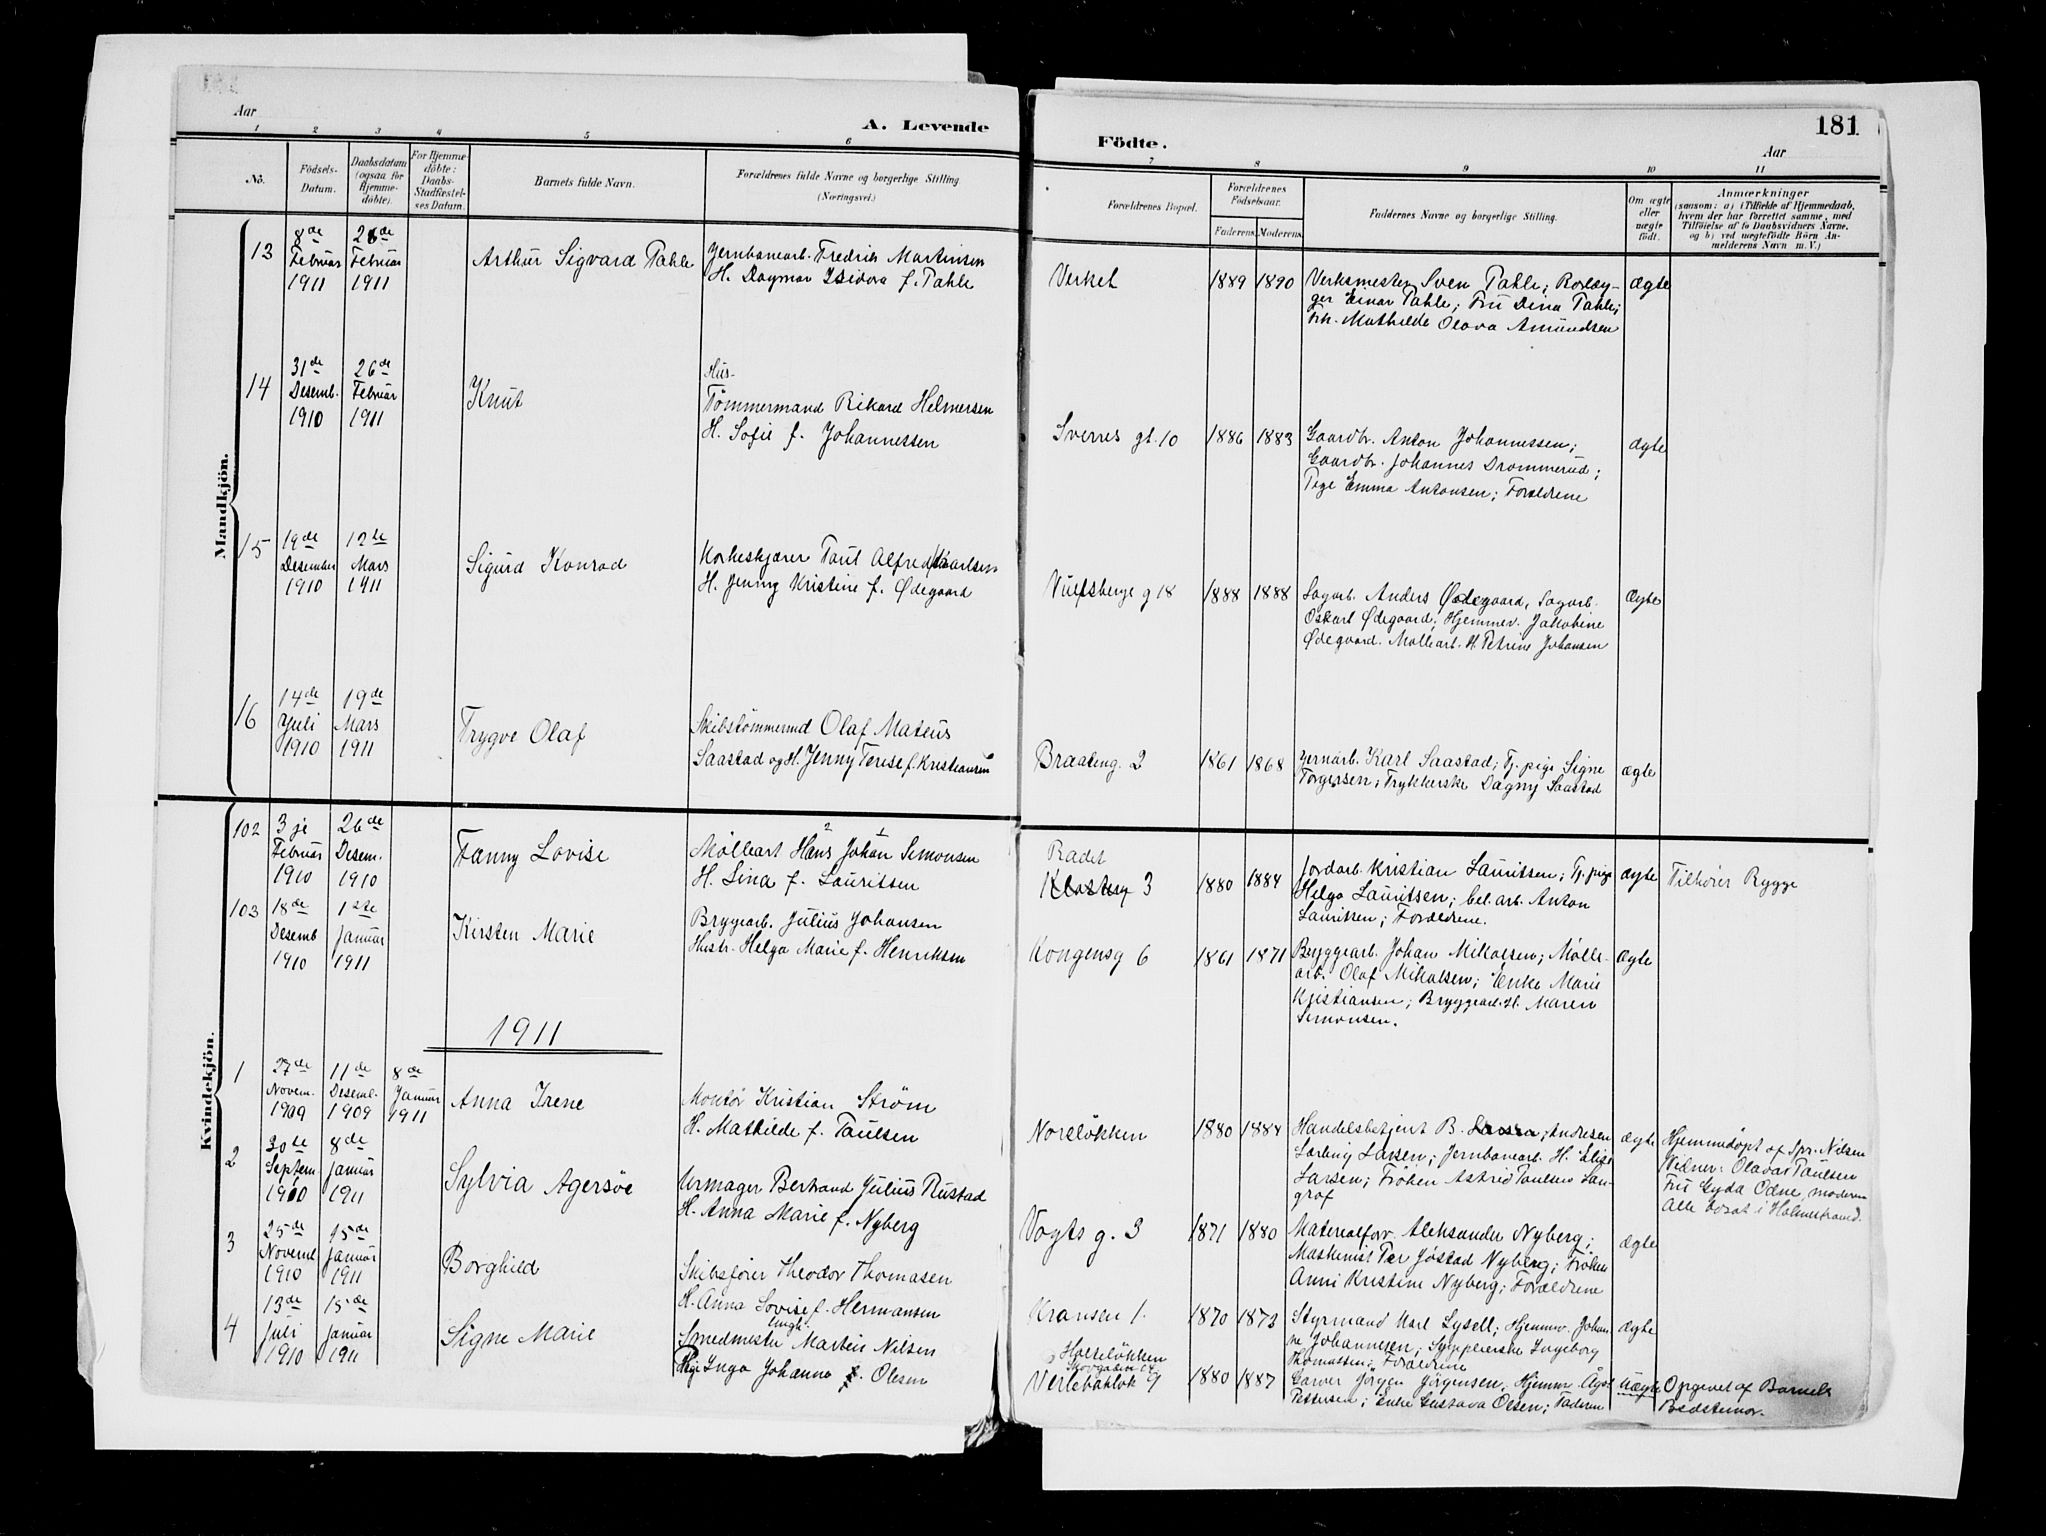 Aar
A. Levende
Födte.
181
Aar
1 2 3 4 5 6 7 8 9 10 11
No.
Födsels-
Datum.
Daabsdatum
(ogsaa for
Hjemme-
döbte).
For Hjemme-
döbte:
Daabs-
Stadfæstel-
ses Datum.
Barnets fulde Navn.
Forældrenes fulde Navne og borgerlige Stilling
(Næringsvei.)
Forældrenes Bopæl.
Forældrenes
Födselsaar.
Faderens. Moderens.
Faddernes Navne og borgerlige Stilling.
Om ægte
eller
uægte
födt.
Anmærkninger
(saasom: a) i Tilfælde af Hjemmedaab,
hvem der har forrettet samme, med
Tilföielse af to Daabsvidners Navne.
og b) ved uægtefödte Börn An-
melderens Navn m. V.)
Mandkjön.
13
8de
Februar
1911
26de
Februar
1911
Arthur Sigvard Tahle
Jernbanearb. Fredrik Martinsen
H. Dagmar Isidora f. Tahle
Verket
1889 1890
Verksmester Sven Tahle; Rørlæg-
ger Einar Tahle; Fru Dina Tahle;
Frk. Mathilde Olava Amundsen
ægte
14
31de
Desemb.
1910
26de
Februar
1911
Knut
Hus-
Tømmermand Rikard Helmersen
H. Sofie f. Johannessen
Sverres gt. 10
1886 1883
Gaardbr. Anton Johannessen;
Gaardbr. Johannes Drommerud;
Pige Emma Antonsen; Forældrene
ægte
15
19de
Desember
1910
12te
Mars
1911
Sigurd Konrad
Korkeskjærer Paul Alfred Kaarlsen
H. Jenny Kristine f. Ødegaard
Vulfsberg g 18
1888 1888
Sagarb. Anders Ødegaard, Sagarb.
Oskarl Ødegaard; Hjemmev. Jakobine
Ødegaard. Møllearb. H. Petrine Johansen
Ægte
16
14de
Juli
1910
19de
Mars
1911
Trygve Olaf
Skibstømmermd Olaf Mateus
Saastad og H. Jenny Terese f. Kristiansen
Braateng. 2
1861 1868
Jernarb. Karl Saastad; Tj. pige Signe
Torgersen; Trykkerske Dagny Saastad
ægte
Kvindekjön.
102
3je
Februar
1910
26de
Desem.
1910
Fanny Lovise
2 1
Møllearb Hans Johan Simonsen
H. Lina f. Lauritsen
Radet
Klosterg 3
1880 1884
Jordarb. Kristian Lauritsen; Tj. pige
Helga Lauritsen; bel. arb. Anton
Lauritsen; Forældrene.
ægte
Tilhører Rygge
103
18de
Desemb
1910
1ste
Januar
1911
Kirsten Marie
Bryggearb. Julius Johansen
Hustr. Helga Marie f. Henriksen
Kongensg 6
1861 1871
Bryggearb. Johan Mikalsen; Mølle-
arb. Olaf Mikalsen; Enke Marie
Kristiansen; Bryggearb. H. Maren
Simonsen.
Ægte
1911
1
27de
Novem.
1909
11de
Desemb.
1909
8de
Januar
1911
Anna Irene
Montør Kristian Strøm
H. Mathilde f. Paulsen
Noreløkken
1880 1884
Handelsbetjent B. Andresen
Lærling Larsen; Jernbanearb. H. Elise
Larsen; Frøken Astrid Paulsen Lan-
graf
ægte
Hjemmedøpt af Spr. Nilsen
Vidner: Olavas Paulsen
Fru Gyda Odne, moderen
Alle bosat i Holmestrand.
2
30te
Septem.
1910
8de
Januar
1911
Sylvia Agersøe
Urmager Bertrand Julius Rustad
H. Anna Marie f. Nyberg
Vogts g. 3
1871 1880
Materialforv. Aleksander Nyberg;
Maskinist Per Jøstad Nyberg; Frøken
Anni Kristine Nyberg; Forældrene
ægte
3
25de
Novemb
1910
15de
Januar
1911
Borghild
Skibsfører Theodor Thomasen
H. Anna Lovise f. Hermansen
Kransen 1.
1870 1872
Styrmand Karl Lysell; Hjemmev. Johan
ne Johannesen; Sypleierske Ingeborg
Thomassen; Forældrene
ægte
4
13de
Juli
1910
15de
Januar
1911
Signe Marie
Ungk.
Smedmester Martin Nilsen
Pige Inga Johanne f. Olesen
Holteløkken
Skovgaden 14
Verlebakløk 9
1880 1887
Garver Jørgen Jørgensen; Hjemmv. Ågot
Pettersen; Enke Gustava Olsen; Faderen
Uægte
Opgivet af Barnets
Bedstemor.